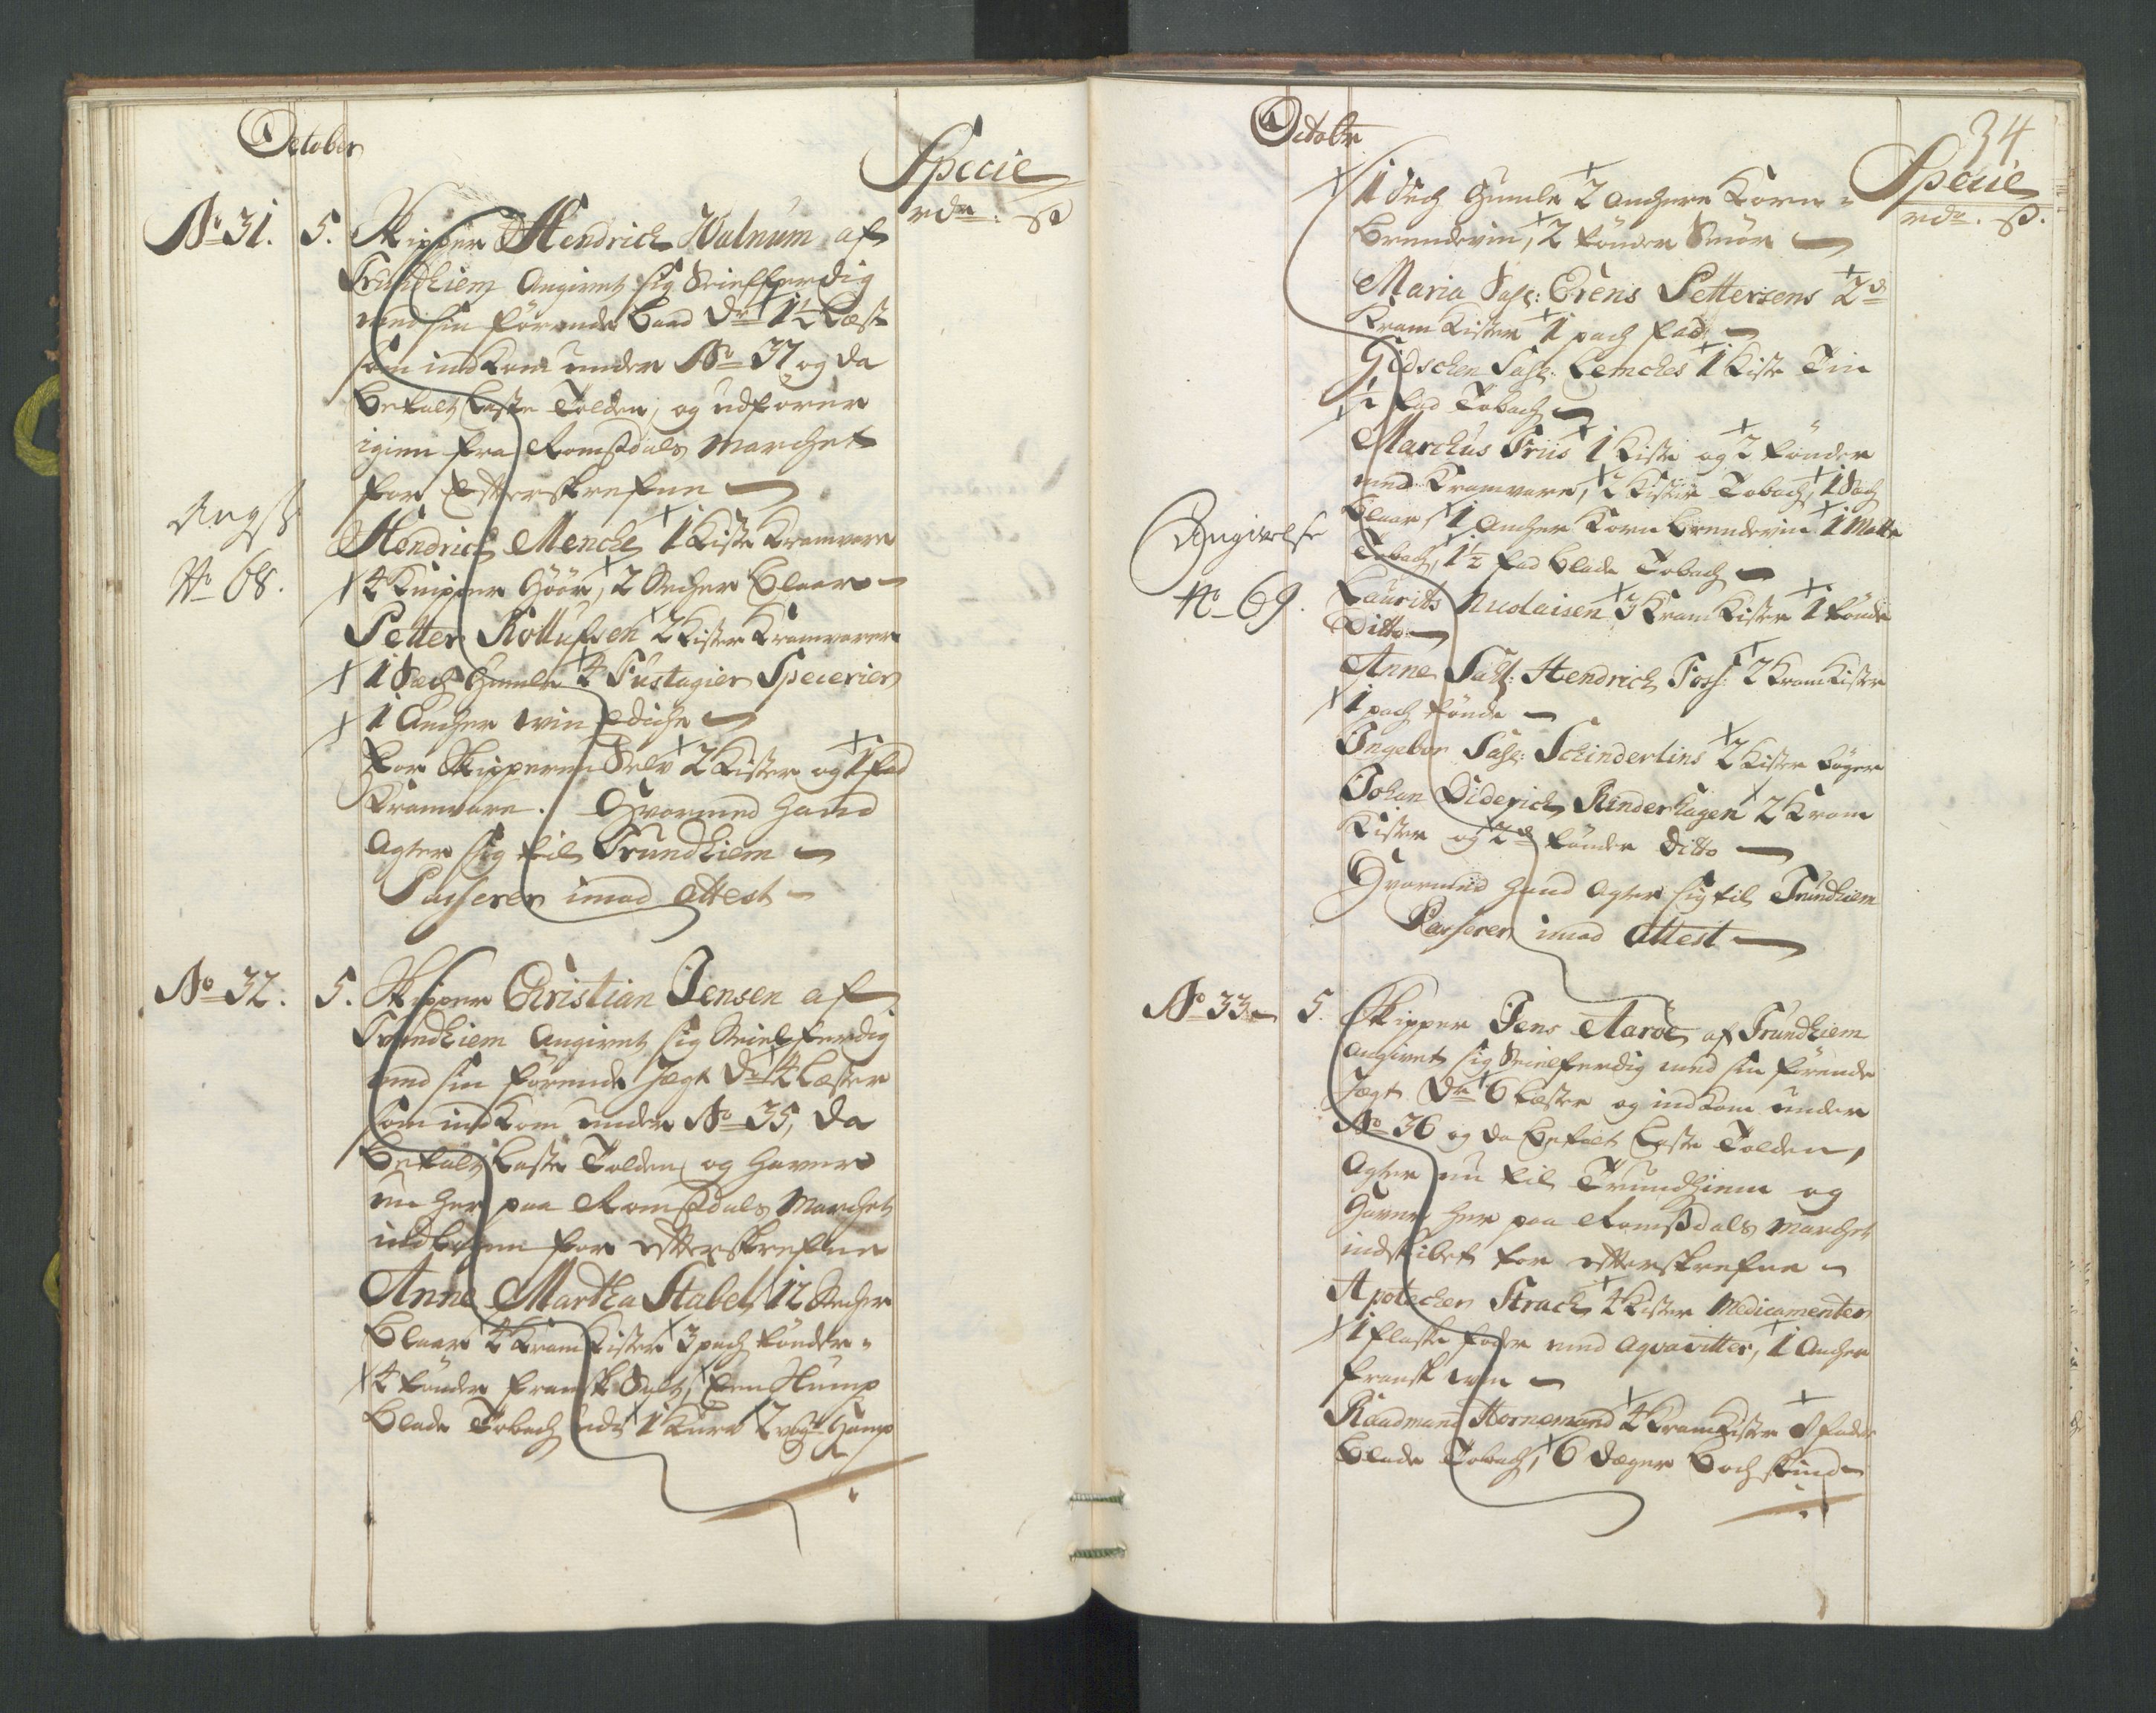 October
Specie
rdr. ß
No 31. 5. Skipper Hendrich Walnum af
Trundhiem Angivet sig Seielferdig
med sin førende Baad Dr. 1½ Læst
som indkom under No 37 og da
betalt Læste Tolden, og udfører
igien fra Romsdals Marchet
for Efterskrefne
Angf
No 68.
Hendrich Mencke 1 Kiste Kramvare
4 Knipper Hør, 2 Secker Blaar
Petter Rollufsen 2 Kister Kramvarer
1 Sæch Humle 4 Fustagier Specerier
1 Ancher Win Edicke
For Skipperen Selv 2 Kister og 1 fad
Kramvare. Hvormed Hand
Agter sig til Trundhiem
Passerer imod Attest
No 32. 5. Skipper Christian Jensen af
Trundhiem Angivet sig Seielferdig
med sin førende Jægt Dr. 4 Læster
som indkom under No 35, da
betalt Læste Tolden og Haver
nu her paa Romsdals Marchet
for efterskrefne
Anne Martha Stabel 12 Secker
Blaar 4 Kram Kister 3 pach tønder
4 tønder Fransk Salt, Een Stump
Blade Tobach 1 Kurv 2 Hamp
34
October
Specie
rdr. ß.
1 Sech Humle 2 Anchere Korn
Brendevin, 2 tønder Smør
Maria Sal: Erens Pettersens 2de
Kram Kister 1 pach fad
Gidschen Sal: Lemches 1 Kiste Tin
1 fad Tobach
Marchus Friis 1 Kiste og 2 tønder
med Kramvare, 2 Kister Tobach, 1 Sæch
Blaar, 1 Ancher Korn Brendevin 1 Matte
Tobach, 1½ fad blade Tobach
Angivelse
No 69.
Laurits Nicolaisen 3 Kram Kister 1 tønde
Ditto
Anne Sal: Hendrich Foss: 2 Kram Kister
1 pach tønde
Ingebor Sal: Schinderlins 2 Kister Bøger
Johan Diderich Rinderhagen 2 Kram
Kister og 2de tønder Ditto
Hvormed Hand Agter sig til Trundhiem
Passerer imod Attest
No 33 5. Skipper Jens Aaröe af Trundhiem
Angivet sig Seielferdig med sin førende
Jægt Dr. 6 Læster og indkom under
No 36 og da betalt Læste Tolden,
Agter nu til Trundhiem og
Haver her paa Romsdals Marchet
indskibet for efterskrefne
Apotecher Strach 4 Kister Medicamenter
1 flaske foder med Aqvavitter, 1 Ancher
Fransk Win
Raadmand Hornemand 4 Kram Kister 8 fade
Blade Tobach, 6 Deger Boch skind